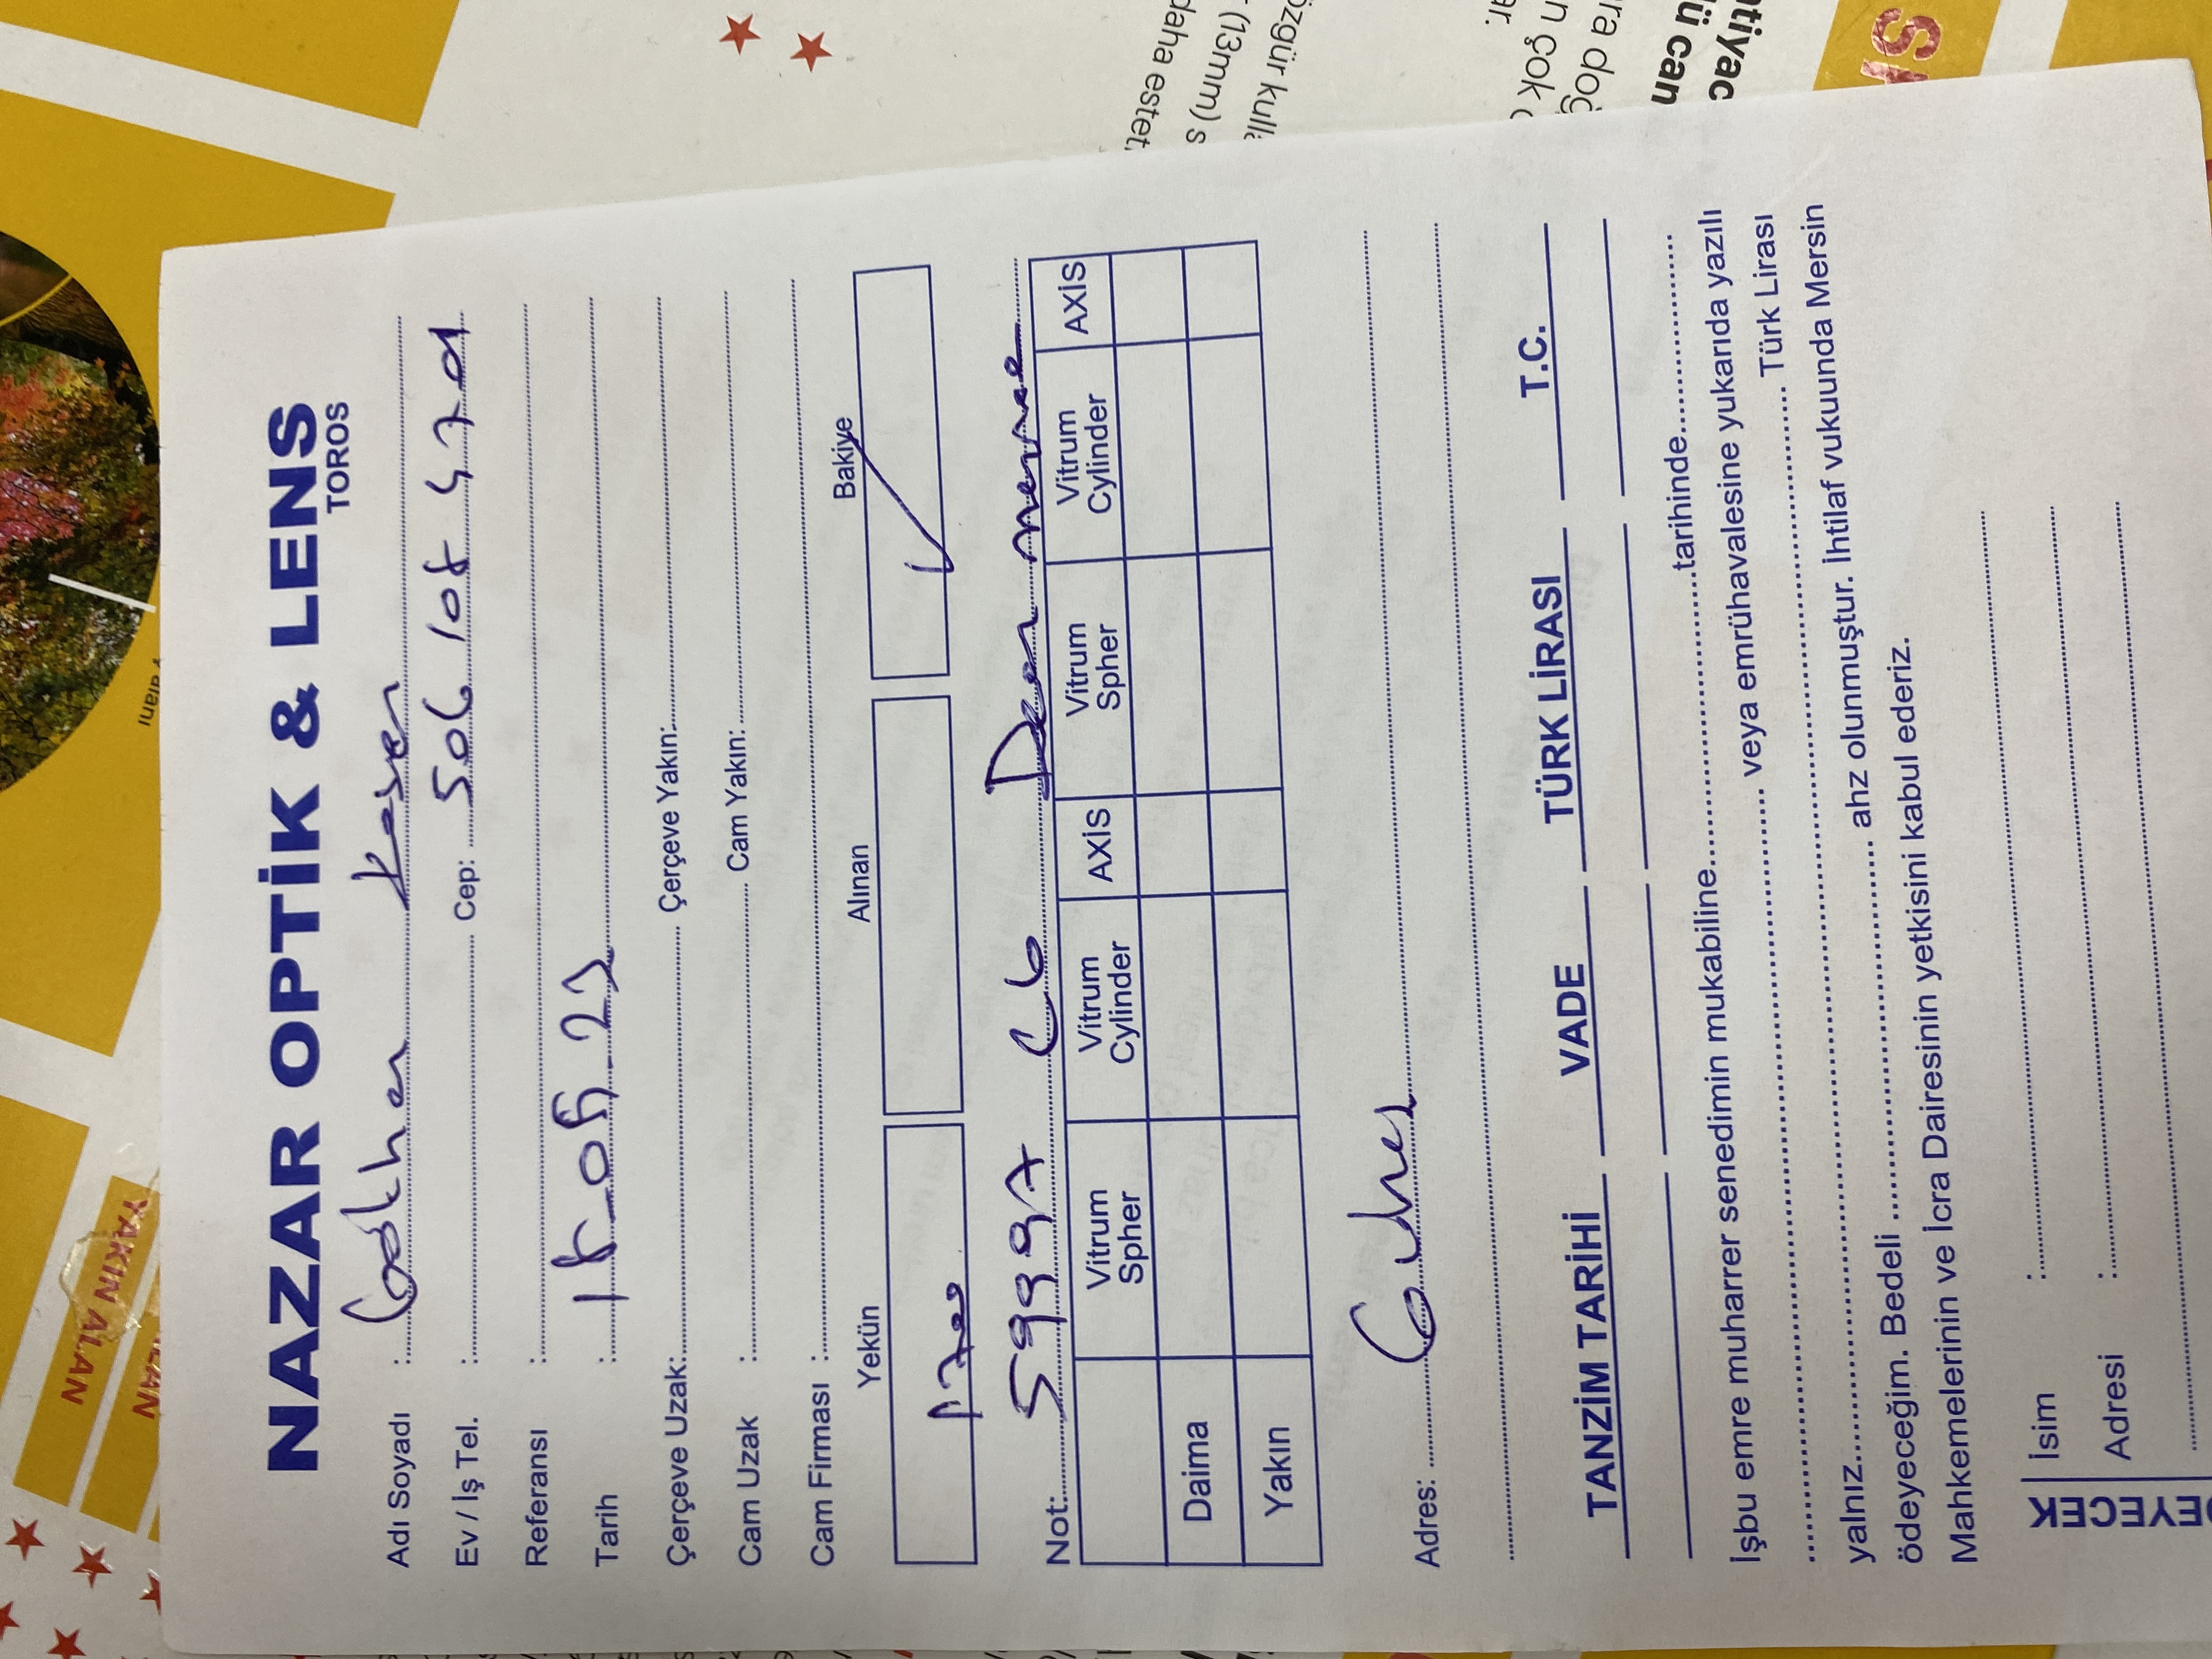 YAKIN ALAN
NAZAR OPTİK & LENS
TOROS
Adı Soyadı : Gökhan
Ev / İş Tel. : Cep: 506 108 47 01
Referansı :
Tarih : 18_05_23
Çerçeve Uzak: Çerçeve Yakın:
Cam Uzak : Cam Yakın:
Cam Firması :
Yekün Alınan Bakiye
1700 ✓
Not: 59997 C6
Vitrum Spher Vitrum Cylinder AXİS Vitrum Spher Vitrum Cylinder AXİS
Daima
Yakın
Adres:
TANZİM TARİHİ VADE TÜRK LİRASI T.C.
İşbu emre muharrer senedimin mukabiline..............................tarihinde.....................
.............................................................................. veya emrühavalesine yukarıda yazılı
yalnız.............................................................................................................. Türk Lirası
ödeyeceğim. Bedeli ....................................... ahz olunmuştur. İhtilaf vukuunda Mersin
Mahkemelerinin ve İcra Dairesinin yetkisini kabul ederiz.
İsim :
Adresi :